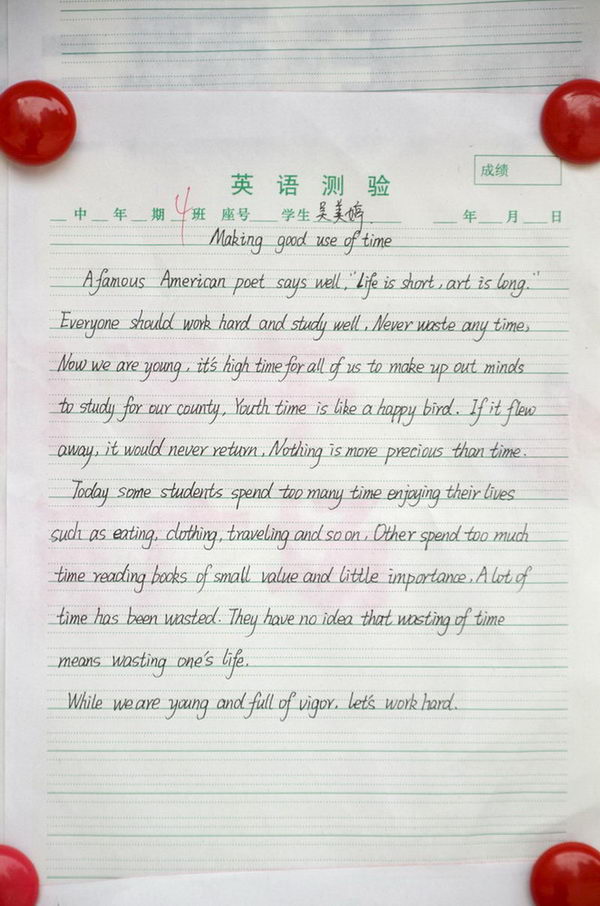 成绩
英语测验
中 年 期 4 班 座号 学生 吴美婷 年 月 日
Making good use of time
A famous American poet says well, "Life is short, art is long."
Everyone should work hard and study well. Never waste any time,
Now we are young, it's high time for all of us to make up out minds
to study for our county, Youth time is like a happy bird. If it flew
away, it would never return, Nothing is more precious than time.
Today some students spend too many time enjoying their lives
such as eating, clothing, traveling and so on. Other spend too much
time reading books of small value and little importance, A lot of
time has been wasted. They have no idea that wasting of time
means wasting one's life.
While we are young and full of vigor. let's work hard.